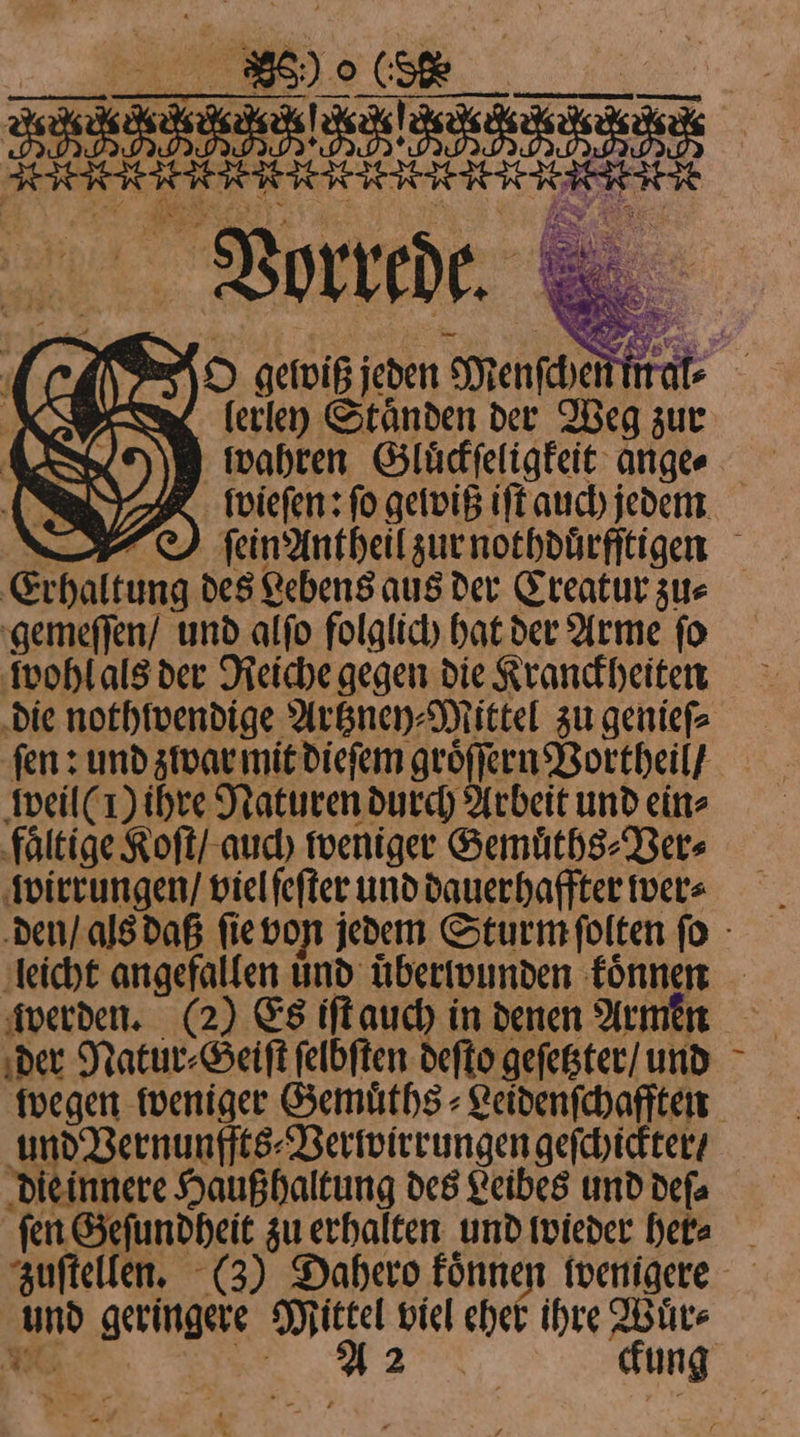 :) o (:
Vorrede.
SO gewiß jeden Menſchen in al⸗
lerley Staͤnden der Weg zur
wahren Gluͤckſeligkeit ange⸗
wieſen: ſo gewiß iſt auch jedem
ſein Antheil zur nothduͤrfftigen
Erhaltung des Lebens aus der Creatur zu⸗
gemeſſen/ und alſo folglich hat der Arme ſo
wohl als der Reiche gegen die Kranckheiten
die nothwendige Artzney⸗Mittel zu genieſ⸗
ſen: und zwar mit dieſem groͤſſern Vortheil/
weil (1) ihre Naturen durch Arbeit und ein⸗
faͤltige Koſt/ auch weniger Gemuͤths⸗Ver⸗
wirrungen/ viel feſter und dauerhaffter wer⸗
den/ als daß ſie von jedem Sturm ſolten ſo
leicht angefallen und uͤberwunden koͤnnen
werden. (2) Es iſt auch in denen Armen
der Natur⸗Geiſt ſelbſten deſto geſetzter/ und
wegen weniger Gemuͤths⸗Leidenſchafften
und Vernunffts⸗Verwirrungen geſchickter/
die innere Haußhaltung des Leibes und deſ⸗
ſen Geſundheit zu erhalten und wieder her⸗
zuſtellen. (3) Dahero koͤnnen wenigere
und geringere Mittel viel eher ihre Wuͤr⸗
A 2 ckung